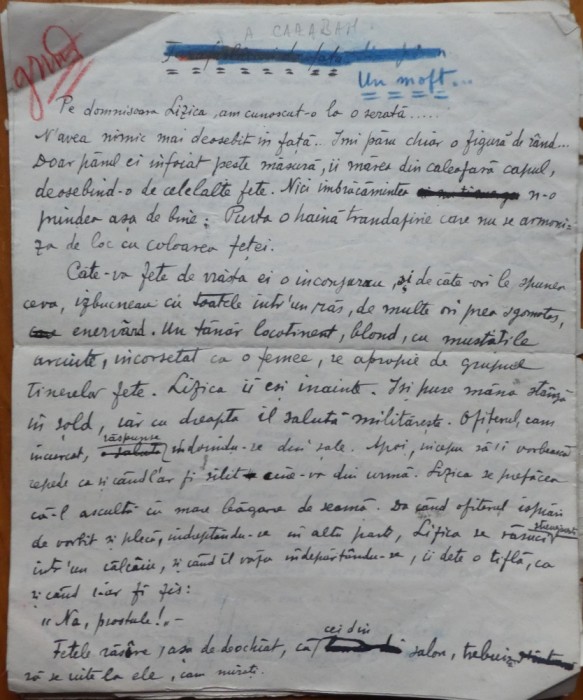 A CARABAȘ
Un moft...
Pe domnisoara Lizica, am cunoscut-o la o serată.....
N'avea nimic mai deosebit în față... Imi păru chiar o figură de rând...
Doar părul ei infoiat peste măsură, ii mărea din caleafară capul,
deosebind-o de celelalte fete. Nici imbrăcămintea n-o
prindea așa de bine: Purta o haină trandafirie care nu se armoni-
za de loc cu coloarea feței.
Câte-va fete de vrâsta ei o inconjurau, și de câte ori le spunea
ceva, izbucneau cu toatele intr'un râs, de multe ori prea sgomotos,
enervând. Un tânăr locotinent, blond, cu mustățile
arcuite, incorsetat ca o femee, se apropie de grupul
tinerelor fete. Lizica ii eși inainte. Isi puse mâna stângă
in șold, iar cu dreapta il salută militărește. Ofițerul, cam
incurcat, răspunse indoindu-se din șale. Apoi, incepu să-i vorbească
repede ca și când l'ar fi silit cine-va din urmă. Lizica se prefăcea
că-l ascultă cu mare băgare de seamă. Da când ofițerul isprăvi
de vorbit și plecă, indreptându-se in altă parte, Lizica se răsuci
intr'un călcâiu, și când il văzu indepărtându-se, ii dete o tiflă, ca
și când i-ar fi zis:
„Na, prostule!„-
Fetele râseră, așa de deochiat, că cei din salon, trebuiră
să se uite la ele, cam mirați.